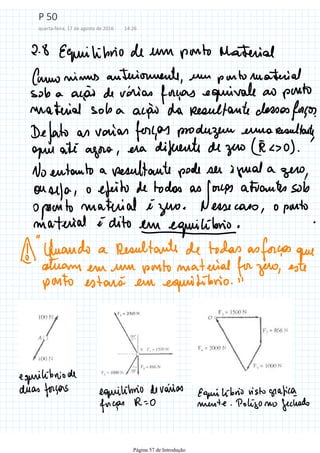 P 50
quarta-feira, 17 de agosto de 2016 14:26
2.8 Equilíbrio de um ponto Material
Como vimos anteriormente, um ponto material
sob a ação de várias forças equivale ao ponto
material sob a ação da Resultante dessas forças.
De fato as várias forças produzem uma resultante,
que até agora, era diferente de zero (R<>0).
No entanto a resultante pode ser igual a zero,
ou seja, o efeito de todas as forças atuantes sob
o ponto material é zero. Nesse caso, o ponto
material é dito em equilíbrio.
"Quando a Resultante de todas as forças que
atuam em um ponto material for zero, este
ponto estará em equilíbrio."
100 N
A
100 N
equilíbrio de
duas forças
F₄ = 2000 N
30°
A F₁ = 1500 N
F₂ = 856 N
30°
F₃ = 1000 N
equilíbrio de várias
forças R=0
F₁ = 1500 N
O
F₂ = 856 N
F₄ = 2000 N
F₃ = 1000 N
Equilíbrio visto grafica
mente. Polígono fechado
Página 57 de Introdução